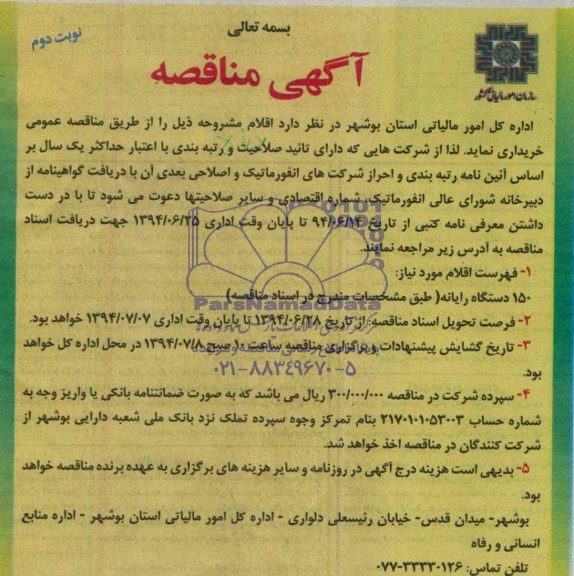 بسمه تعالی
نوبت دوم
آگهی مناقصه
سازمان امور مالیاتی کشور
اداره کل امور مالیاتی استان بوشهر در نظر دارد اقلام مشروحه ذیل را از طریق مناقصه عمومی
خریداری نماید. لذا از شرکت هایی که دارای تائید صلاحیت و رتبه بندی با اعتبار حداکثر یک سال بر
اساس آئین نامه رتبه بندی و احراز شرکت های انفورماتیک و اصلاحی بعدی آن با دریافت گواهینامه از
دبیرخانه شورای عالی انفورماتیک، شماره اقتصادی و سایر صلاحیتها دعوت می شود تا با در دست
داشتن معرفی نامه کتبی از تاریخ ۹۴/۰۶/۱۴ تا پایان وقت اداری ۱۳۹۴/۰۶/۲۵ جهت دریافت اسناد
مناقصه به آدرس زیر مراجعه نمایند.
۱- فهرست اقلام مورد نیاز:
۱۵۰ دستگاه رایانه( طبق مشخصات مندرج در اسناد مناقصه)
ParsNamadData
۲- فرصت تحویل اسناد مناقصه: از تاریخ ۱۳۹۴/۰۶/۲۸ تا پایان وقت اداری ۱۳۹۴/۰۷/۰۷ خواهد بود.
۳- تاریخ گشایش پیشنهادات و برگزاری مناقصه ساعت ۱۰ صبح ۱۳۹۴/۰۷/۸ در محل اداره کل خواهد
بود.
۰۲۱-۸۸۳۴۹۶۷۰-۵
۴- سپرده شرکت در مناقصه ۳۰۰/۰۰۰/۰۰۰ ریال می باشد که به صورت ضمانتنامه بانکی یا واریز وجه به
شماره حساب ۲۱۷۰۱۰۱۰۵۳۰۰۳ بنام تمرکز وجوه سپرده تملک نزد بانک ملی شعبه دارایی بوشهر از
شرکت کنندگان در مناقصه اخذ خواهد شد.
۵- بدیهی است هزینه درج آگهی در روزنامه و سایر هزینه های برگزاری به عهده برنده مناقصه خواهد
بود.
بوشهر- میدان قدس- خیابان رئیسعلی دلواری - اداره کل امور مالیاتی استان بوشهر - اداره منابع
انسانی و رفاه
تلفن تماس: ۳۳۳۳۰۱۲۶-۰۷۷